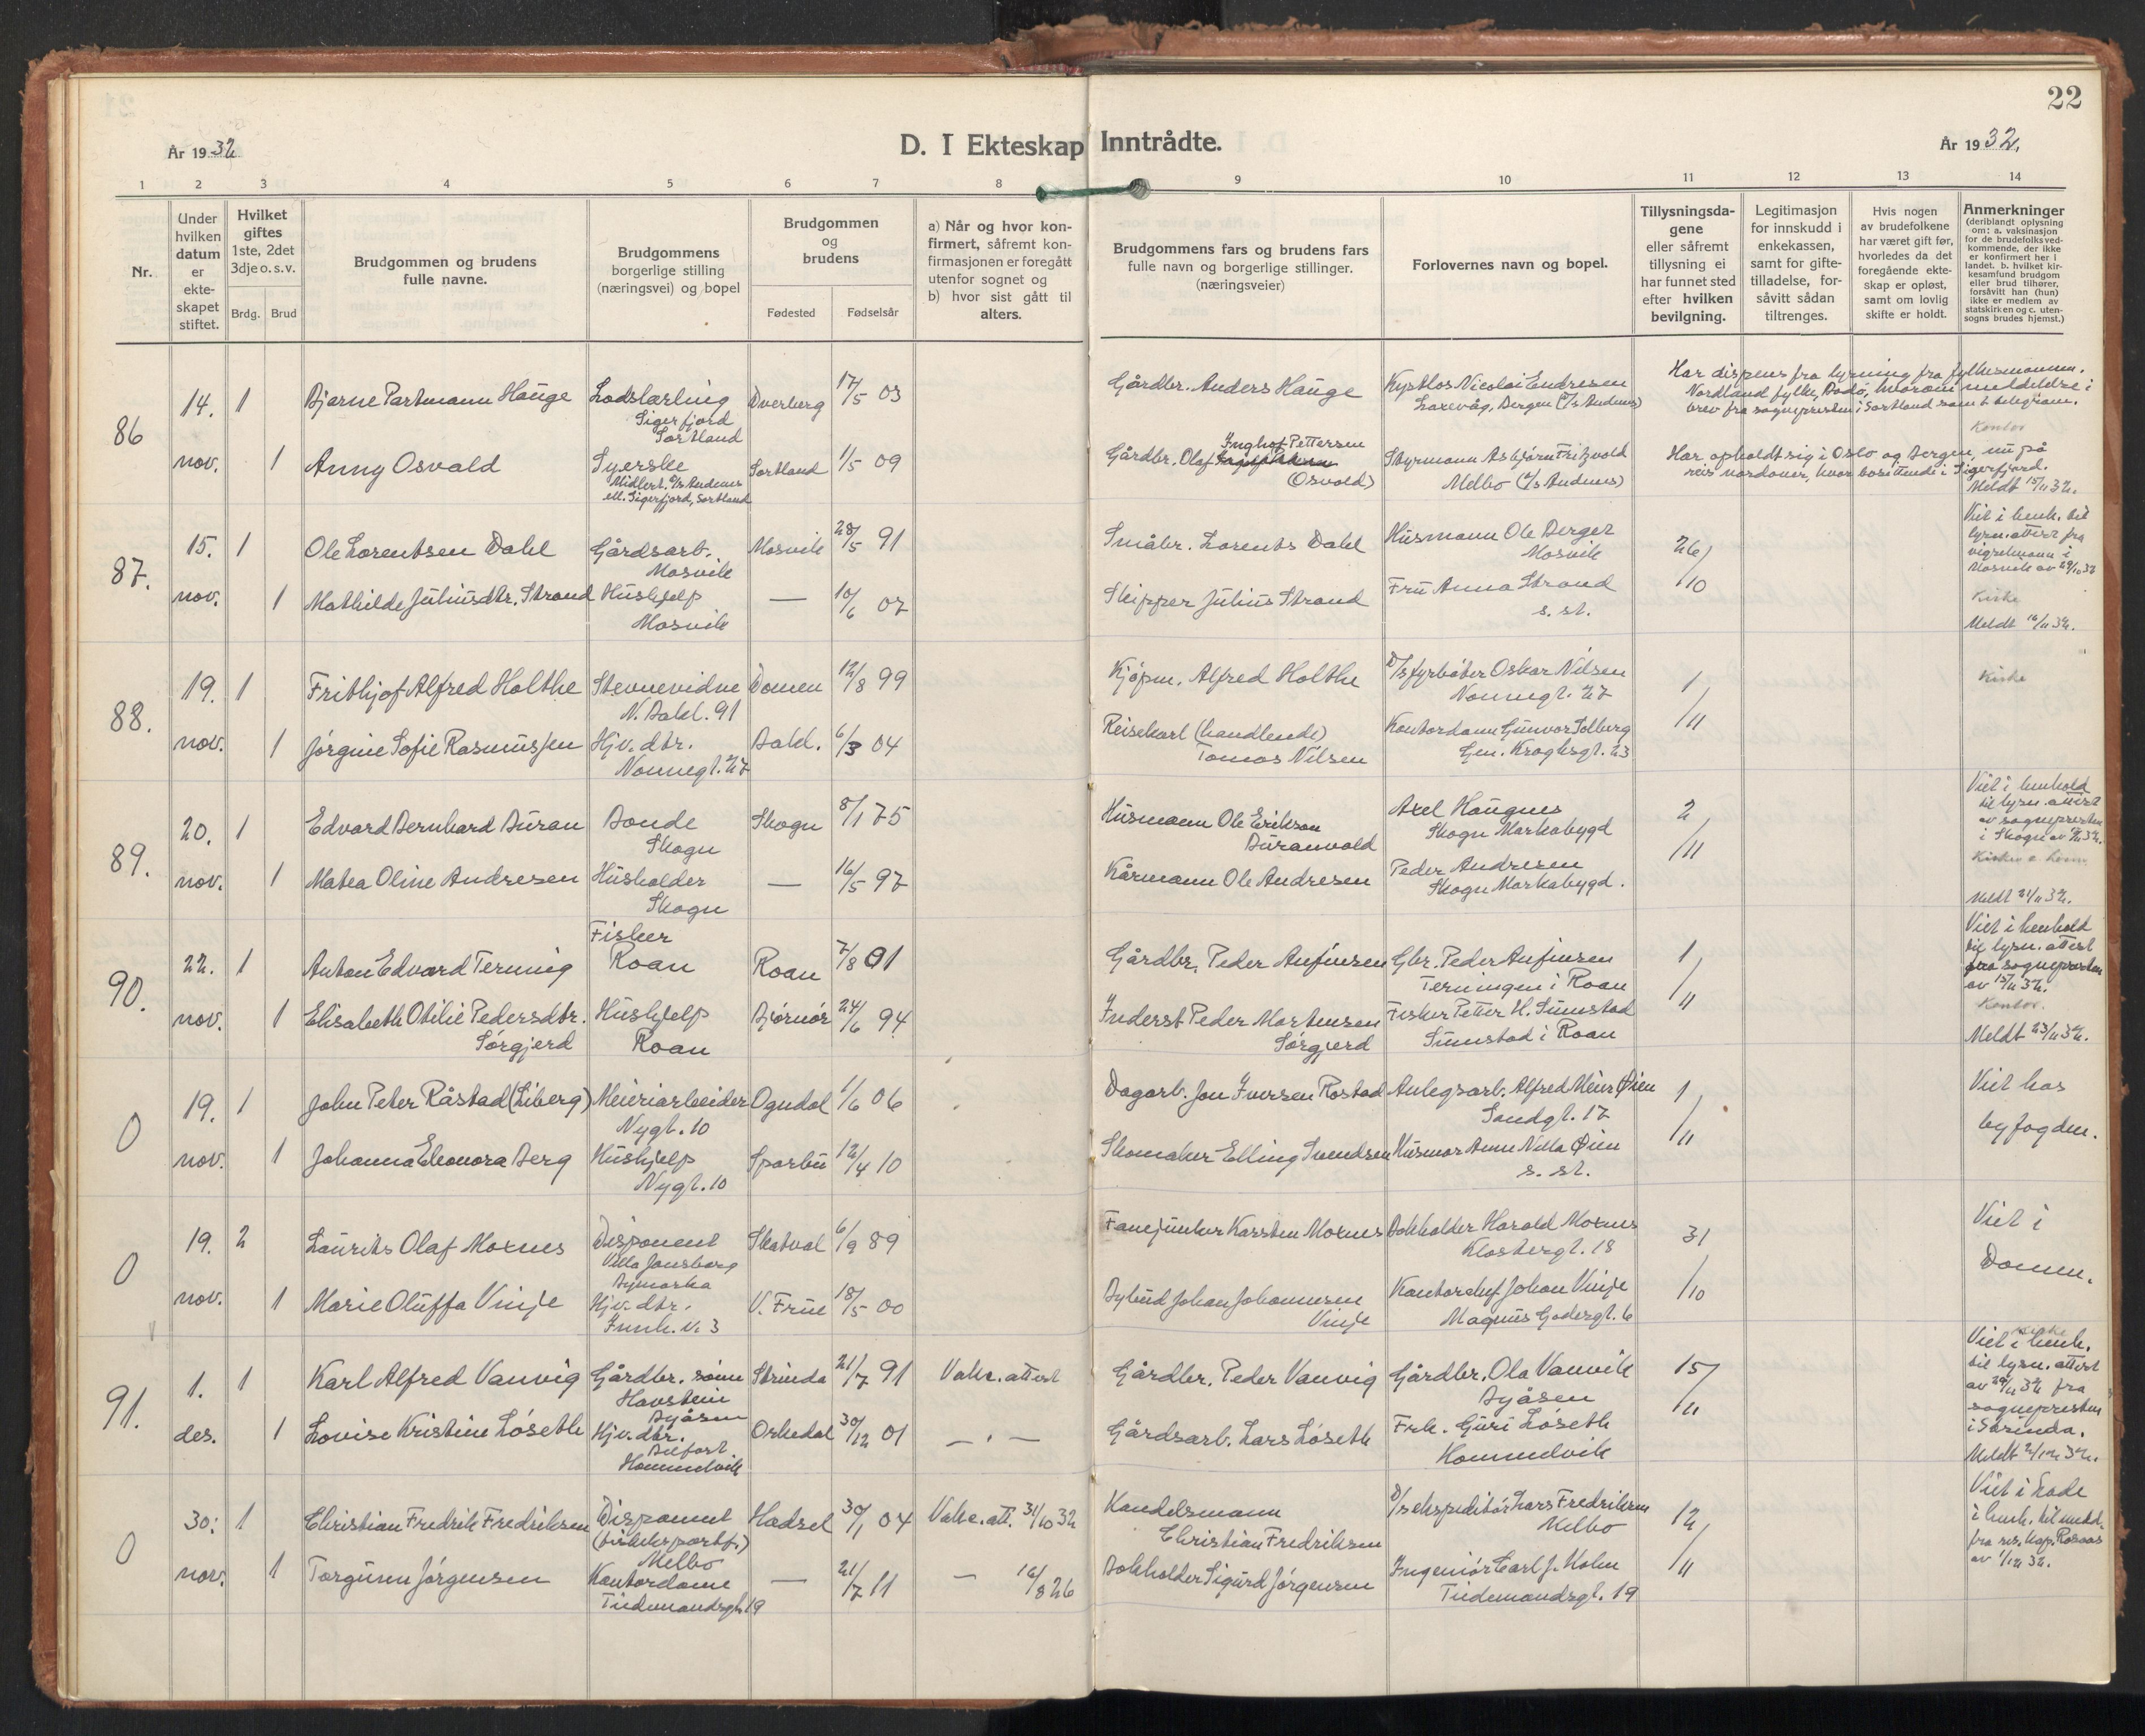 22
År 1932
D. I Ekteskap Inntrådte.
År 1932.
1 2 3 4 5 6 7 8 9 10 11 12 13 14
Nr.
Under hvilken datum er ekte-skapet stiftet.
Hvilket giftes 1ste, 2det 3dje o. s. v.
Brdg. Brud
Brudgommen og brudens fulle navne.
Brudgommens borgerlige stilling (næringsvei) og bopel
Brudgommen og brudens
Fødested Fødselsår
a) Når og hvor kon-firmert, såfremt kon-firmasjonen er foregått utenfor sognet og
b) hvor sist gått til alters.
Brudgommens fars og brudens fars fulle navn og borgerlige stillinger. (næringsveier)
Forlovernes navn og bopel.
Tillysningsda-gene eller såfremt tillysning ei har funnet sted efter hvilken bevilgning.
Legitimasjon for innskudd i enkekassen, samt for gifte-tilladelse, for-såvitt sådan tiltrenges.
Hvis nogen av brudefolkene har været gift før, hvorledes da det foregående ekte-skap er opløst, samt om lovlig skifte er holdt.
Anmerkninger (deriblandt oplysning om: a. vaksinasjon for de brudefolks ved-kommende, der ikke er konfirmert her i landet. b. hvilket kir-kesamfund brudgom eller brud tilhører, forsåvitt han (hun) ikke er medlem av statskirken og c. uten-sogns brudes hjemst.)
86
14. 1 Bjarne Partmann Hauge Lodslærling Dverberg 17/5 03
Sigerfjord
Sortland
Gårdbr. Anders Hauge
Kystlos Nicolai Endresen
Laxevåg, Bergen (D/s Andenes)
Har dispens fra lysning fra fylkesmannen.
Nordland fylke, Bodø, hvorom meldelse i
brev fra sognepresten i Sortland samt telegram.
Kontor
nov. 1 Anny Osvald Syerske Sortland 1/5 09
Midlert. D/s Andenes
ell. Sigerfjord, Sortland
Inghof Pettersen
Gårdbr. Olaf
(Osvold)
Styrmann Asbjørn Fritzvold
Melbo (D/s Andenes)
Har opholdt sig i Oslo og Bergen, nu på
reis nordover, hvor bosittende i Sigerfjord.
Meldt 15/11 32.
87.
15. 1 Ole Lorentsen Dahl Gårdsarb. Mosvik 28/5 91
Mosvik
Småbr. Lorents Dahl
Husmann Ole Berget
Mosvik
26/10
Viet i henh. til
lysn.attest fra
vigselmann i
Mosvik av 29/10 32
nov. 1 Mathilde Juliusdtr. Strand Hushjelp — 10/6 07
Mosvik
Skipper Julius Strand
Fru Anna Strand
s. st.
Kirke
Meldt 16/11 32.
88.
19. 1 Frithjof Alfred Holthe Stevnevidne Domen 12/8 99
N. Bakl. 91
Kjøpm. Alfred Holthe
D/s fyrbøter Oskar Nilsen
Nonnegt. 27
1/11
Kirke
nov. 1 Jørgine Sofie Rasmussen Hjv. dtr. Bakl. 6/3 04
Nonnegt. 27
Reisekarl (handlende)
Tomas Nilsen
Kontordame Gunvor Solberg
Gen. Kroghsgt. 23
89.
20. 1 Edvard Bernhard Buran Bonde Skogn 8/1 75
Skogn
Husmann Ole Erikson
Buranvold
Axel Haugnes
Skogn Markabygd
2/11
Viet i henhold
til lysn. attest
av sognepresten
i Skogn av
nov. 1 Matea Oline Andresen Husholder — 16/5 97
Skogn
Kårmann Ole Andresen
Peder Andresen
Skogn Markabygd.
Meldt 21/11 32.
90.
22. 1 Anton Edvard Terning Fisker Roan 7/8 91
Roan
Gårdbr. Peder Anfinsen
Gbr. Peder Anfinsen
Terningen i Roan
1/11
Viet i henhold
til lysn. attest
fra sognepresten
av 15/11 32.
Kontor.
nov. 1 Elisabeth Otilie Pedersdtr. Hushjelp Bjørnør 24/6 94
Sørgjerd Roan
Inderst Peder Martensen
Sørgjerd
Fisker Petter H. Sumstad
Sumstad i Roan
Meldt 23/11 32.
0
19. 1 John Peter Råstad (Liberg) Meieriarbeider Ogndal 1/6 06
Nygt. 10
Dagarb. Jon Iversen Rostad
Anlegsarb. Alfred Meier Øien
Sandgt. 17
1/11
Viet hos
byfogden.
nov. 1 Johanna Eleonora Berg Hushjelp Sparbu 12/4 10
Nygt. 10
Skomaker Elling Svendsen
Husmor Anne Nilla Øien
s. st.
0
19. 2 Laurits Olaf Moxnes Disponent Skatval 6/9 89
Villa Jonsborg
Bymarka
Fanejunker Karsten Moxnes
Bokholder Harald Moxnes
Klostergt. 18
31/10
Viet i
Domen.
nov. 1 Marie Oluffa Vinje Hjv. dtr. V. Frue 18/5 00
Innh. v. 3
Bybud Johan Johannesen
Vinje
Kontorchef Johan Vinje
Magnus Godesgt. 6
91.
1. 1 Karl Alfred Vanvig Gårdbr. sønn Strinda 21/7 91 Vaks. attest
Havstein
Byåsen
Gårdbr. Peder Vanvig
Gårdbr. Ola Vanvik
Byåsen
15/11
Kirke
Viet i henh.
til lysn. attest
av 29/11 32 fra
sognepresten
i Strinda.
des. 1 Lovise Kristine Løseth Hjv. dtr. Orkedal 30/12 01 — " —
Hommelvik
Gårdsarb. Lars Løseth
Frk. Guri Løseth
Hommelvik
Meldt 2/12 32.
0
30. 1 Christian Fredrik Fredriksen Disponent Hadsel 30/1 04 Vaks. att. 31/10 32
Melbo
Handelsmann
Christian Fredriksen
D/s ekspeditør Lars Fredriksen
Melbo
12/11
Viet i Lade
i henh. til medd.
fra res. kap. Rosaas
av 1/12 32.
nov. 1 Torgunn Jørgensen Kontordame — 21/7 11 — 16/8 26
Tidemandsgt. 19
Bokholder Sigurd Jørgensen
Ingeniør Carl J. Holm
Tidemandsgt. 19